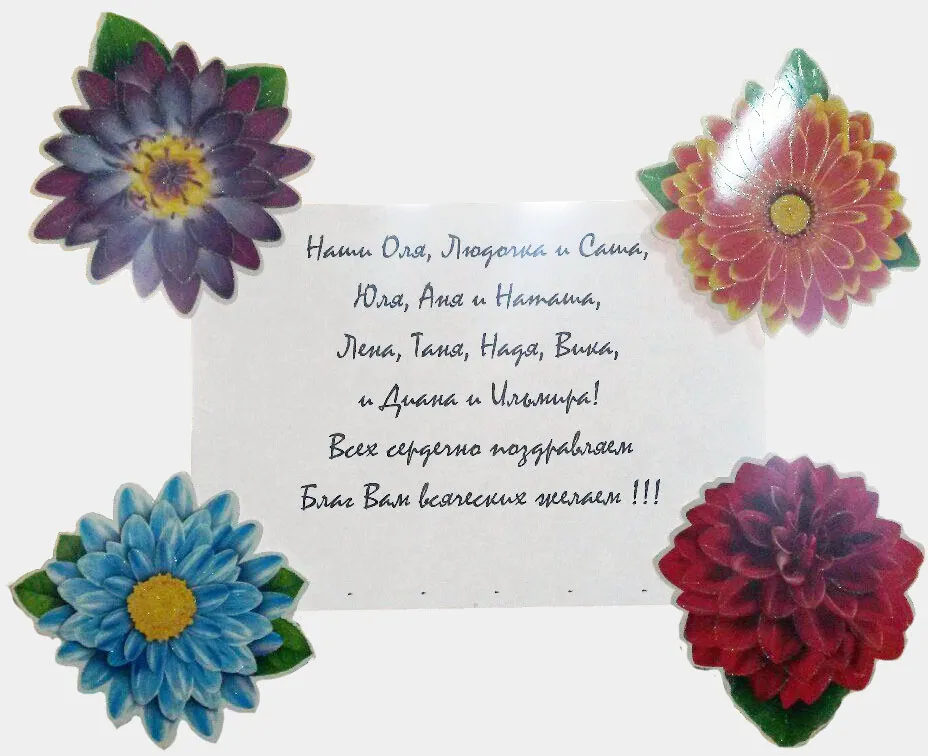 Наши Оля, Людочка и Саша,
Юля, Аня и Наташа,
Лена, Таня, Надя, Вика,
и Диана и Ильмира!
Всех сердечно поздравляем
Благ Вам всяческих желаем !!!